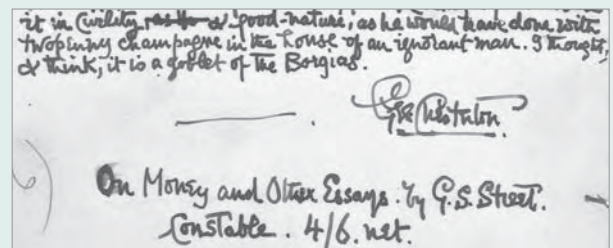 it in Civility & good-nature, as he would have done with
twopenny champagne in the house of an ignorant man. I thought,
& think, it is a goblet of the Borgias.
G K Chesterton
On Money and Other Essays. by G.S. Street.
Constable. 4/6. net.